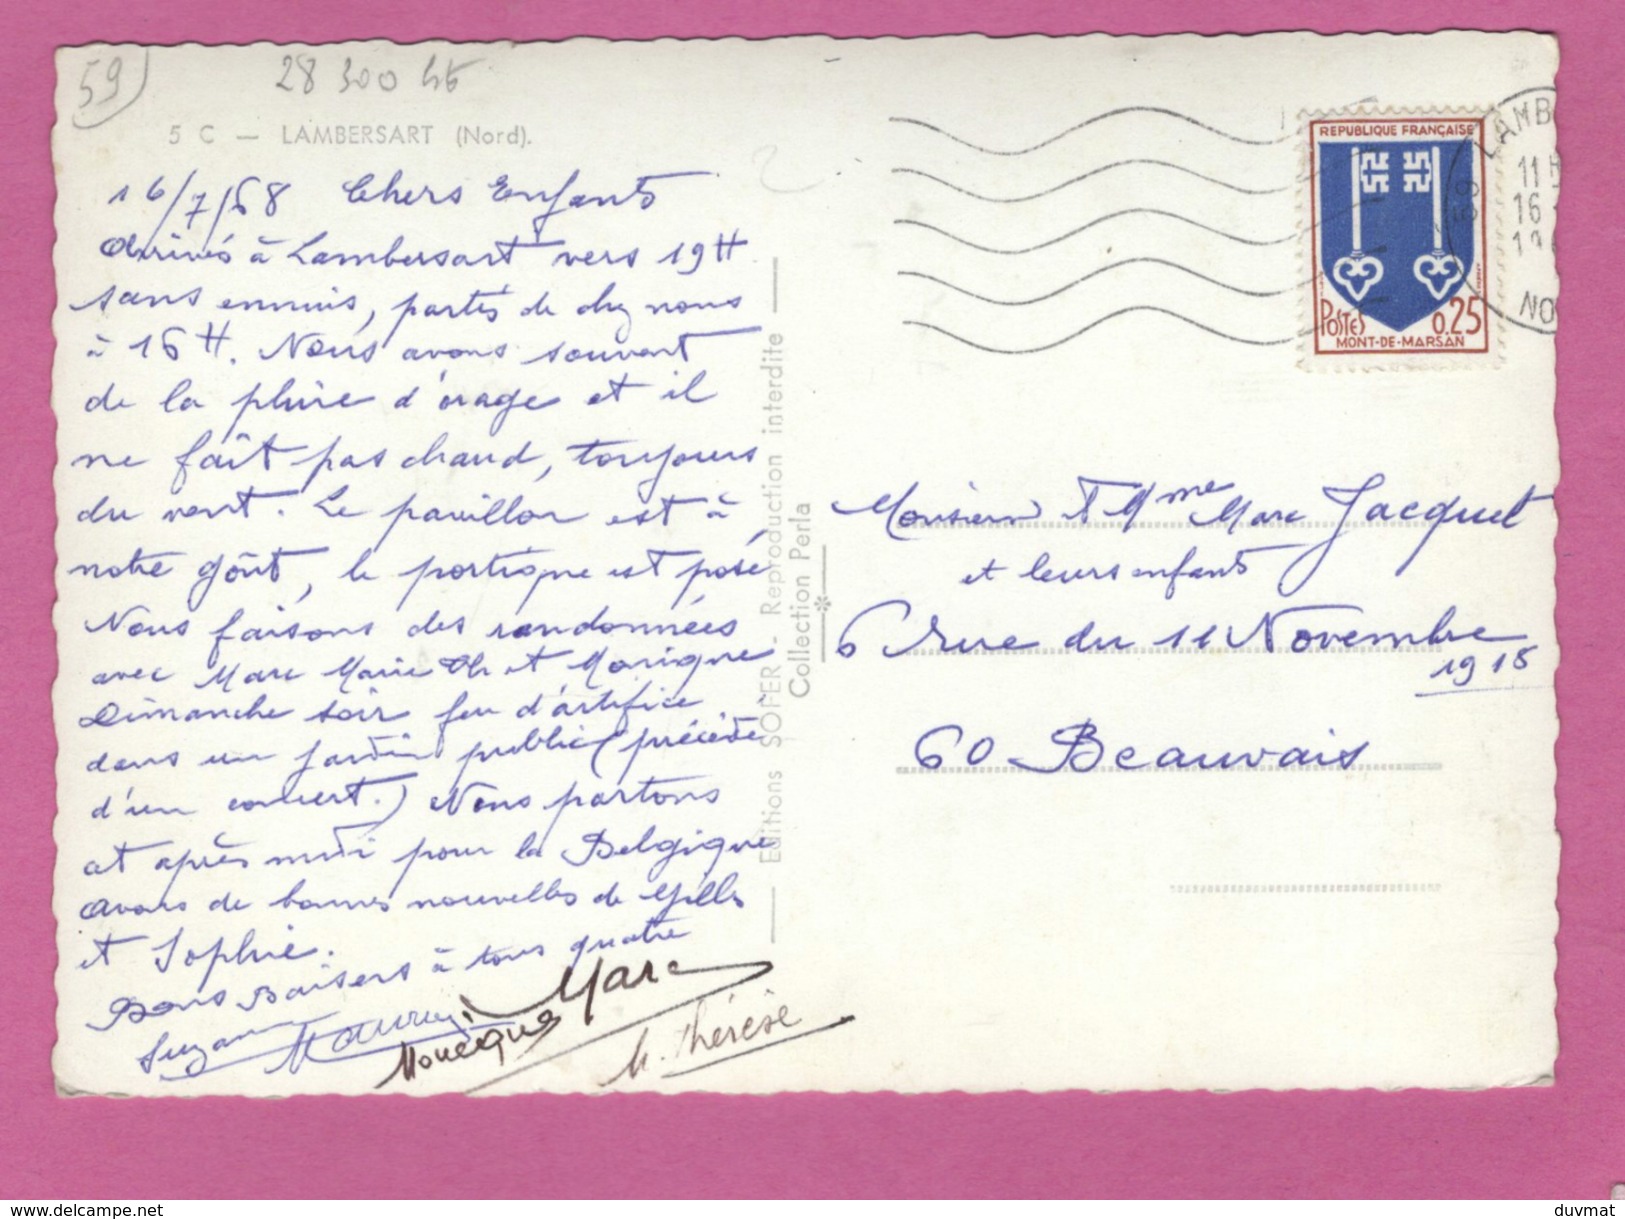 59
28 300 46
5 C — LAMBERSART (Nord).
16/7/68 Chers Enfants
Arrivés à Lambersart vers 19H
sans ennuis, partis de chez nous
à 16H. Nous avons souvent
de la pluie d'orage et il
ne fait pas chaud, toujours
du vent. Le pavillon est à
notre goût, le portique est posé
Nous faisons des randonnées
avec Marc Marie Th et Monique
Dimanche soir feu d'artifice
dans un jardin public (précédé
d'un concert.) Nous partons
cet après midi pour la Belgique
avons de bonnes nouvelles de Gilles
et Sophie.
Bons Baisers à tous quatre
Suzanne Maurice Monique Marc
M. Thérèse
Editions SOFER - Reproduction interdite
Collection Perla
REPUBLIQUE FRANÇAISE
POSTES 0.25
MONT-DE-MARSAN
59 LAMB
11 H
16
NO
Monsieur et Mme Marc Jacquet
et leurs enfants
6 rue du 11 Novembre
1918
60 Beauvais
delcampe.net
duvmat